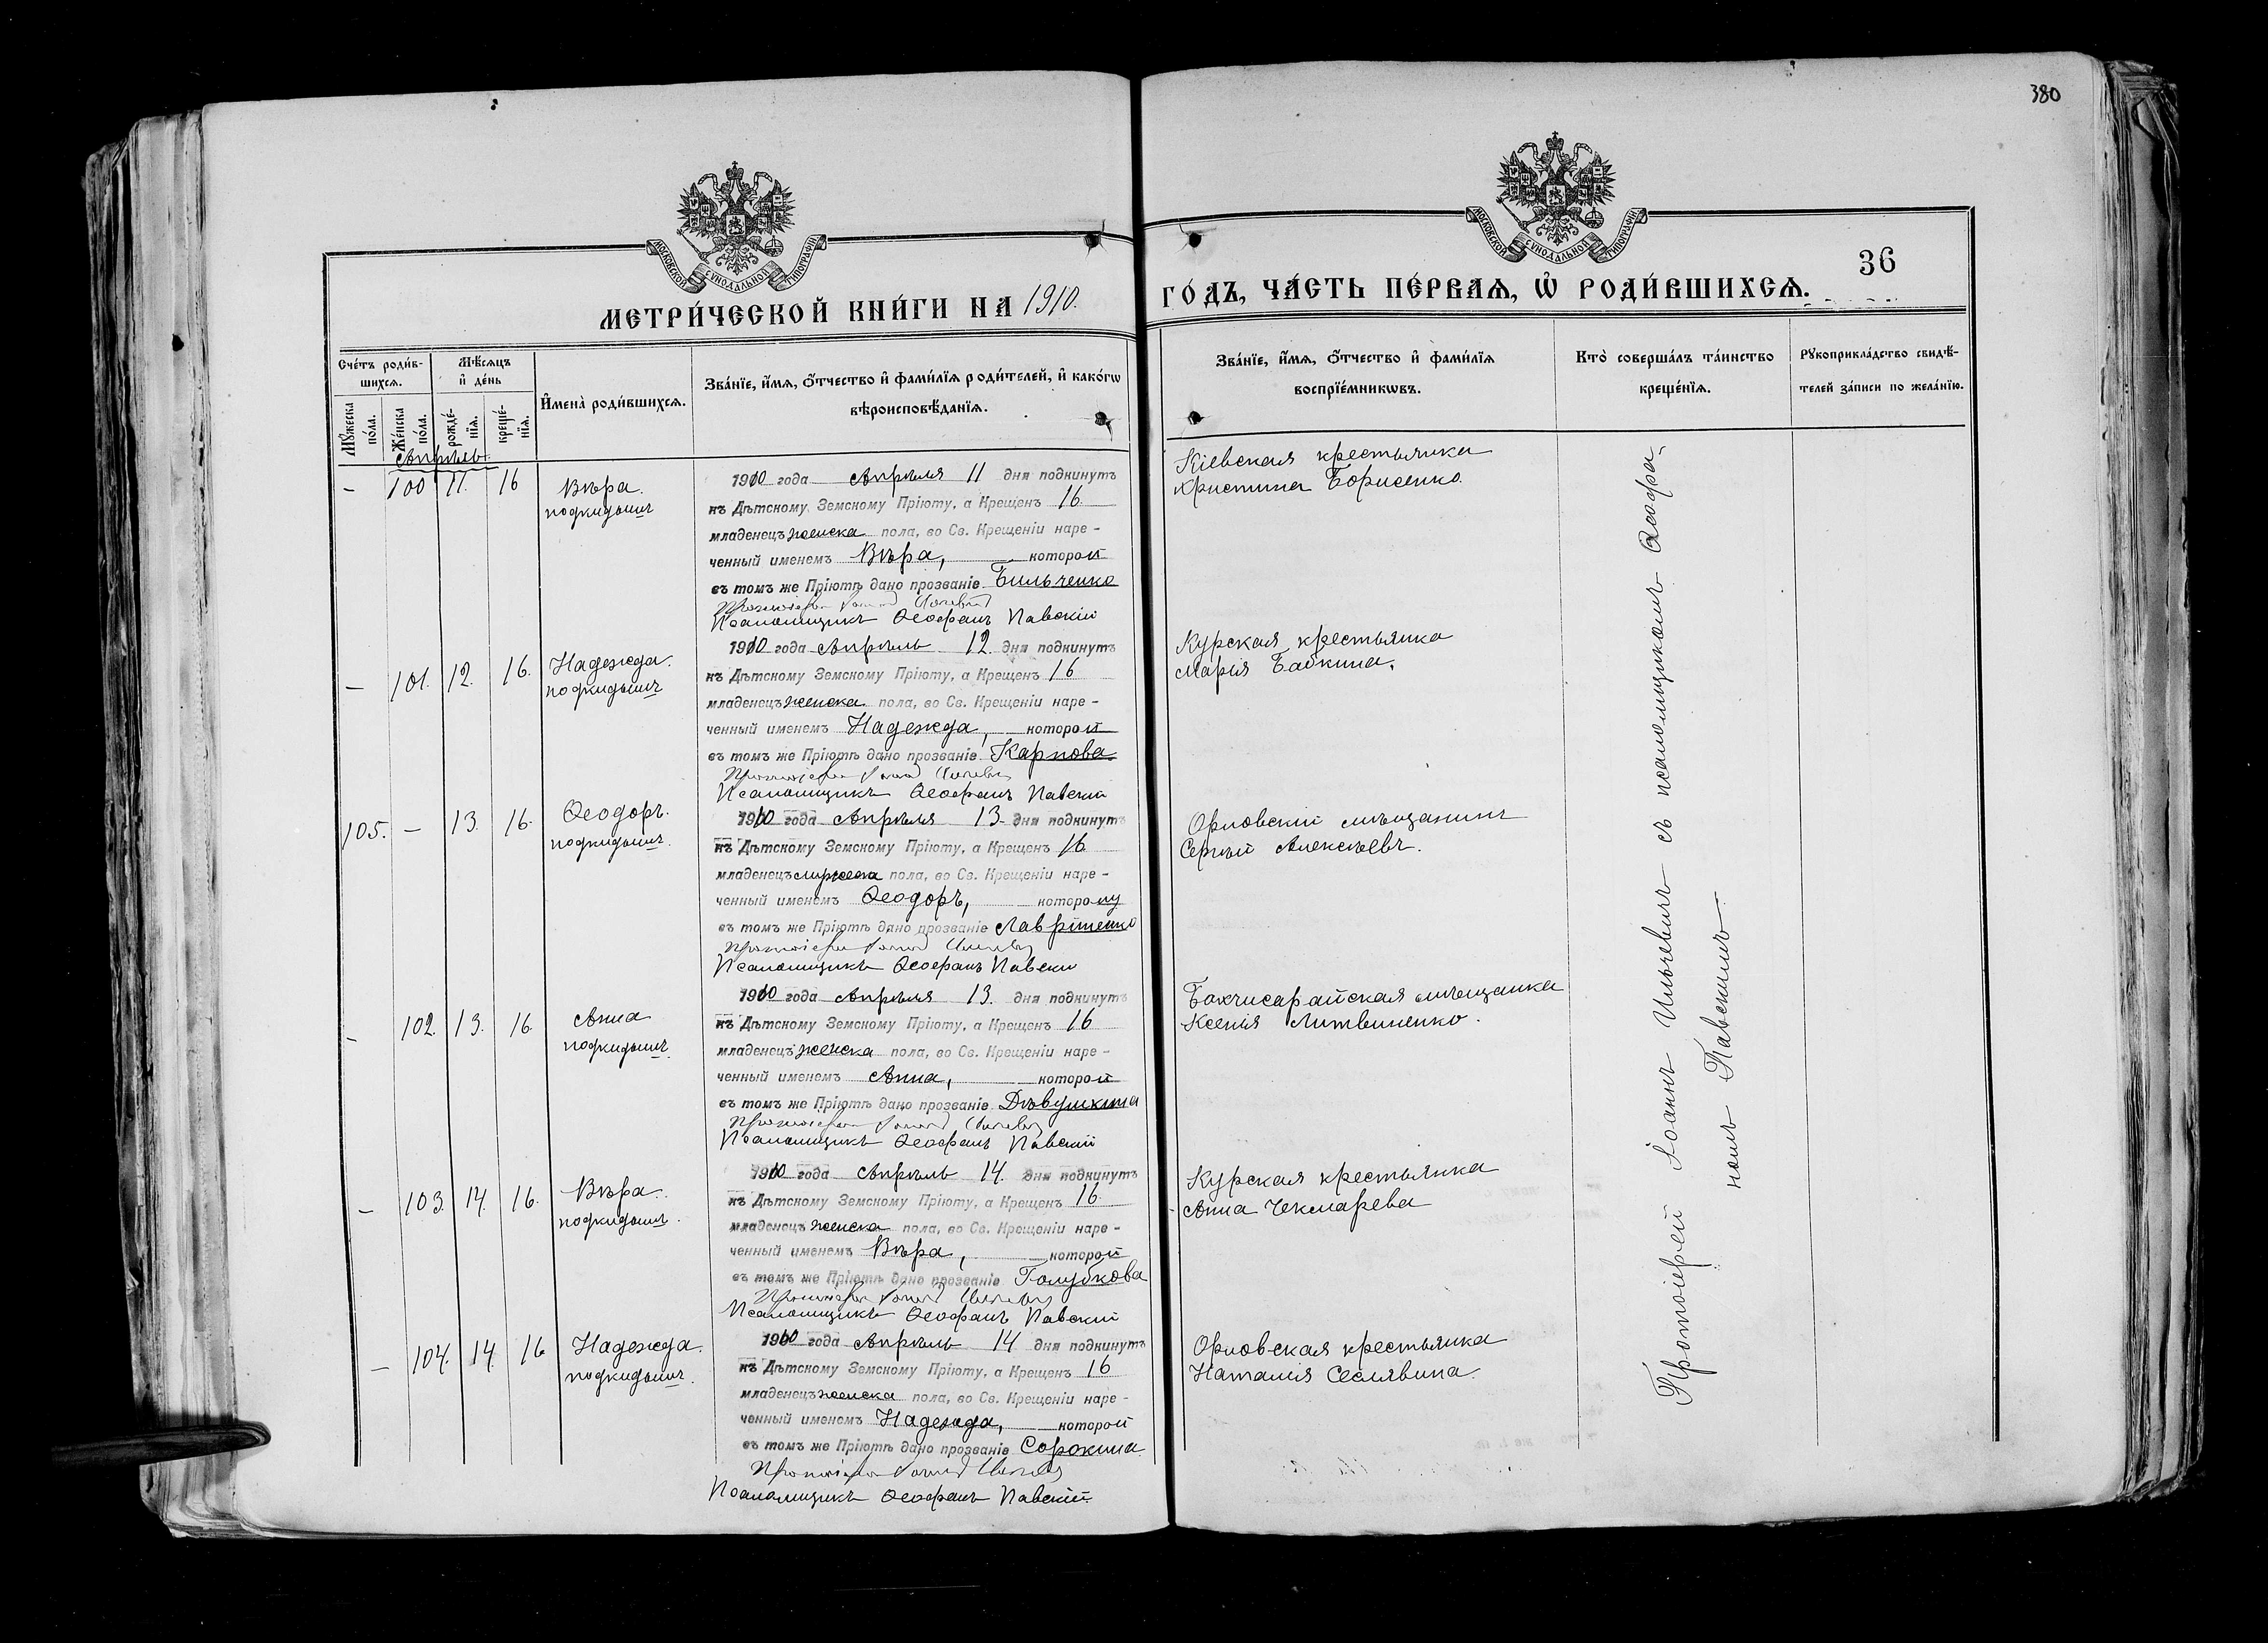 380
МОСКОВСКОЙ СѴНОДАЛЬНОЙ ТИПОГРАФІИ
МОСКОВСКОЙ СѴНОДАЛЬНОЙ ТИПОГРАФІИ
36
МЕТРИ́ЧЕСКОЙ КНИ́ГИ НА 1910.
ГО́ДЪ, ЧА́СТЬ ПЕ́РВАѦ, Ѡ҆ РОДИ́ВШИХСѦ.
Сче́тъ роди́в-
шихсѧ.
Мꙋ́жеска
по́ла.
Же́нска
по́ла.
Мѣ́сѧцъ
и҆ де́нь
рожде́-
нїѧ.
креще́-
нїѧ.
И҆мена̀ роди́вшихсѧ.
Зва́нїе, и҆́мѧ, ѻ҆́тчество и҆ фами́лїѧ роди́телей, и҆ како́гѡ
вѣроисповѣ́данїѧ.
Зва́нїе, и҆́мѧ, ѻ҆́тчество и҆ фами́лїѧ
воспрїе́мникѡвъ.
Кто̀ соверша́лъ та́инство
креще́нїѧ.
Рꙋкоприкла́дство свидѣ́-
телей за́писи по жела́нїю.
Апрѣль
- 100 11. 16
Вѣра.
подкидышъ
1910 года Апрѣля 11 дня подкинутъ
къ Дѣтскому Земскому Пріюту, а Крещенъ 16
младенецъ женска пола, во Св. Крещеніи наре -
ченный именемъ Вѣра, которой
въ томъ же Пріютѣ дано прозваніе Бильченко
Псаломщикъ Ѳеофанъ Павскій
Кіевская крестьянка
Христина Борисенко.
- 101. 12. 16.
Надежда.
подкидышъ
1910 года Апрѣль 12. дня подкинутъ
къ Дѣтскому Земскому Пріюту, а Крещенъ 16
младенецъ женска пола, во Св. Крещеніи наре -
ченный именемъ Надежда, которой
въ томъ же Пріютѣ дано прозваніе Карпова
Псаломщикъ Ѳеофанъ Павскій
Курская крестьянка
Марія Бабкина.
105. - 13. 16.
Ѳеодоръ.
подкидышъ.
1910 года Апрѣля 13. дня подкинутъ
къ Дѣтскому Земскому Пріюту, а Крещенъ 16
младенецъ мужеска пола, во Св. Крещеніи наре -
ченный именемъ Ѳеодоръ, которому
въ томъ же Пріютѣ дано прозваніе Лавріненко
Псаломщикъ Ѳеофанъ Павскій
Орловскій мѣщанинъ
Сергѣй Алексѣевъ.
- 102. 13. 16.
Анна
подкидышъ.
1910 года Апрѣля 13. дня подкинутъ
къ Дѣтскому Земскому Пріюту, а Крещенъ 16
младенецъ женска пола, во Св. Крещеніи наре -
ченный именемъ Анна, которой
въ томъ же Пріютѣ дано прозваніе Дѣвушкина
Псаломщикъ Ѳеофанъ Павскій
Бахчисарайская мѣщанка
Ксенія Литвиненко.
- 103. 14. 16.
Вѣра.
подкидышъ.
1910 года Апрѣль 14. дня подкинутъ
къ Дѣтскому Земскому Пріюту, а Крещенъ 16
младенецъ женска пола, во Св. Крещеніи наре -
ченный именемъ Вѣра, которой
въ томъ же Пріютѣ дано прозваніе Голубкова
Псаломщикъ Ѳеофанъ Павскій
Курская крестьянка
Анна Чекмарева
- 104. 14. 16
Надежда.
подкидышъ.
1910 года Апрѣль 14 дня подкинутъ
къ Дѣтскому Земскому Пріюту, а Крещенъ 16
младенецъ женска пола, во Св. Крещеніи наре -
ченный именемъ Надежда, которой
въ томъ же Пріютѣ дано прозваніе Сорокина
Псаломщикъ Ѳеофанъ Павскій.
Орловская крестьянка
Наталія Селявина.
Протоіерей Іоаннъ Ильчевичъ съ псаломщикомъ Ѳеофа-
номъ Павскимъ